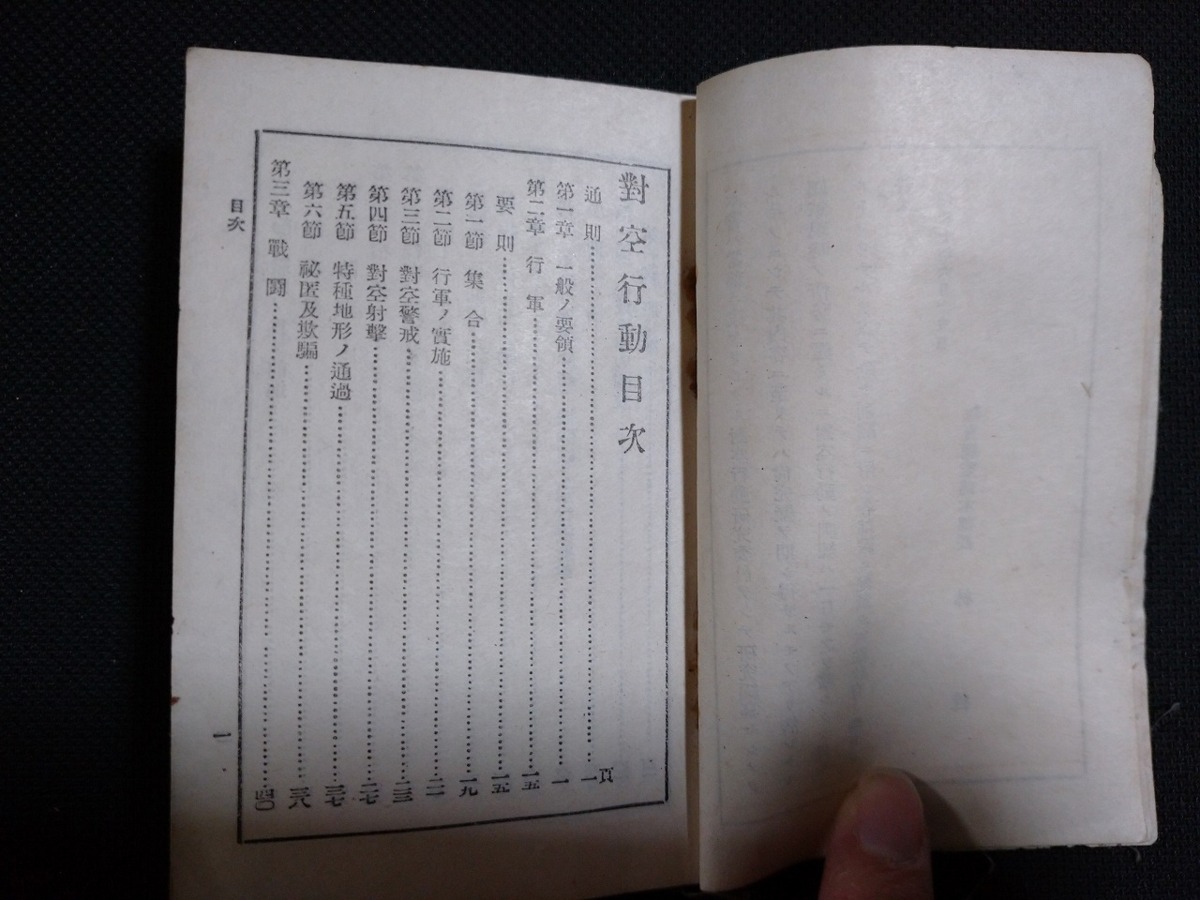 對空行動目次
頁
通則……一
第一章 一般ノ要領……一
第二章 行軍……一五
要則……一五
第一節 集合……一九
第二節 行軍ノ實施……二一
第三節 對空警戒……二三
第四節 對空射擊……二七
第五節 特種地形ノ通過……三七
第六節 祕匿及欺騙……三八
第三章 戰鬪……四〇
目次
一